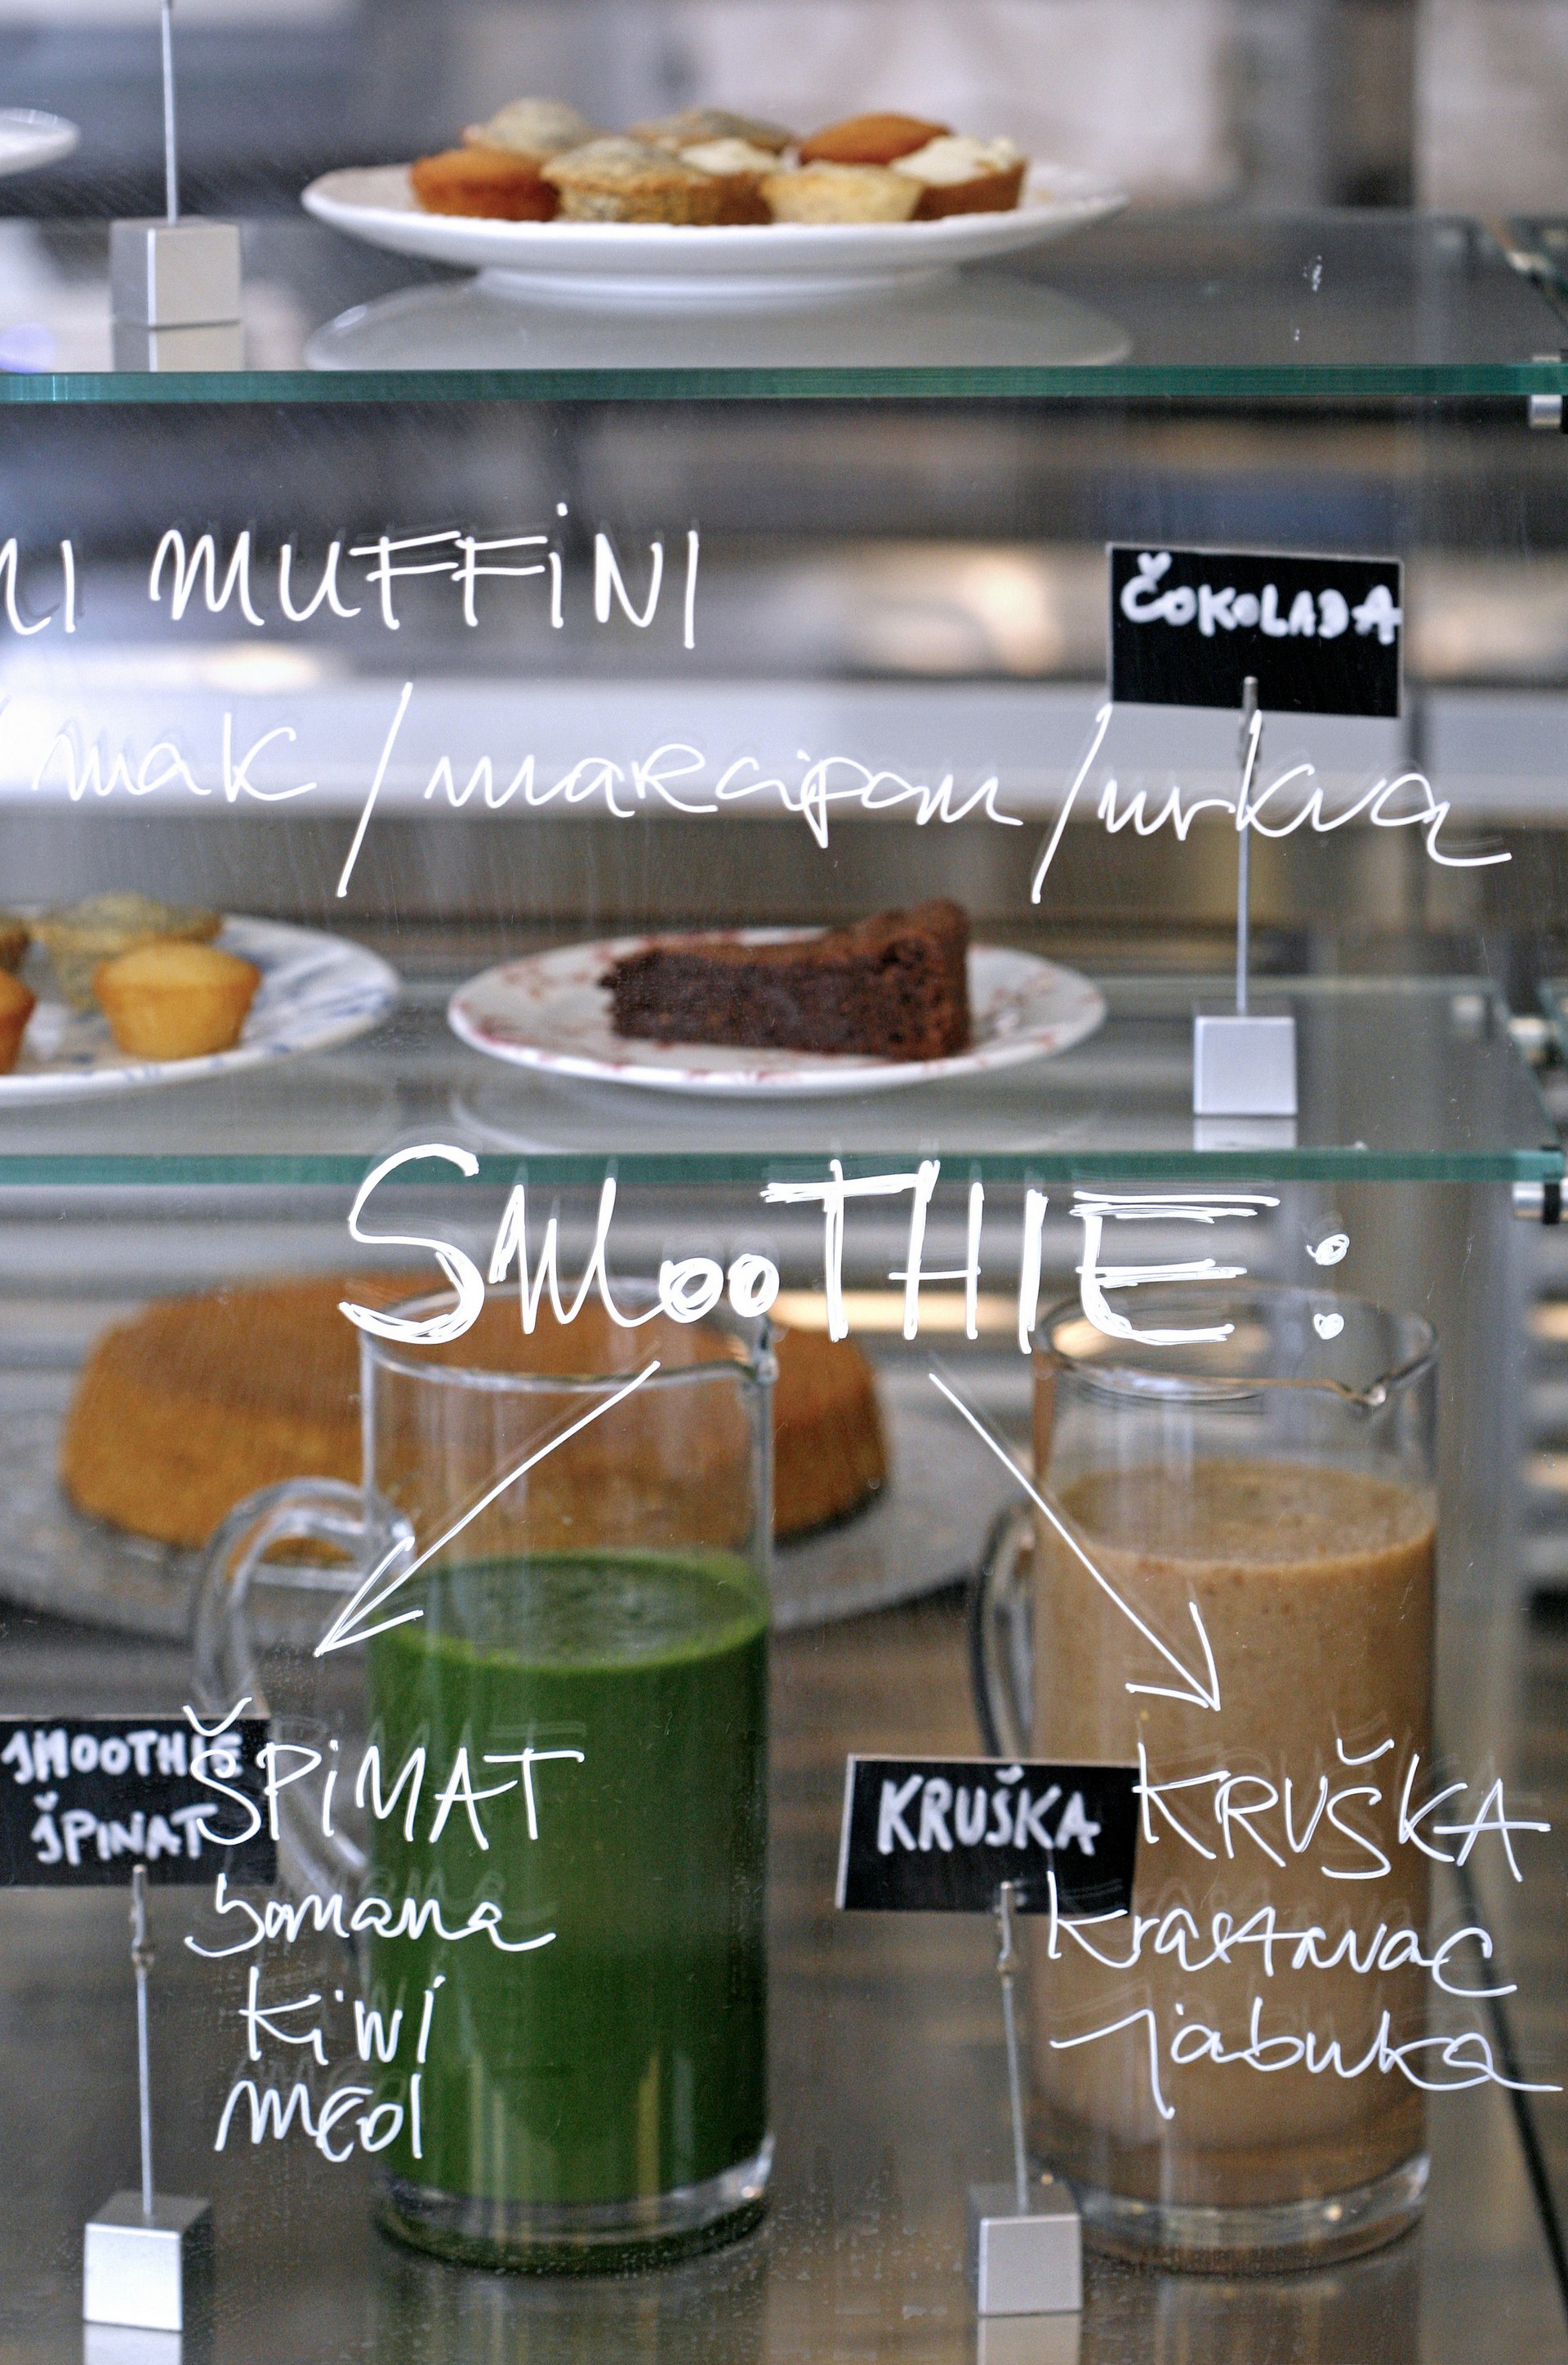 MUFFiNI
ČOKOLADA
mak / marcipan / mrkva
SMOOTHIE:
SMOOTHIE
ŠPINAT
ŠPiNAT
banana
kiwi
med
KRUŠKA
KRUŠKA
krastavac
jabuka